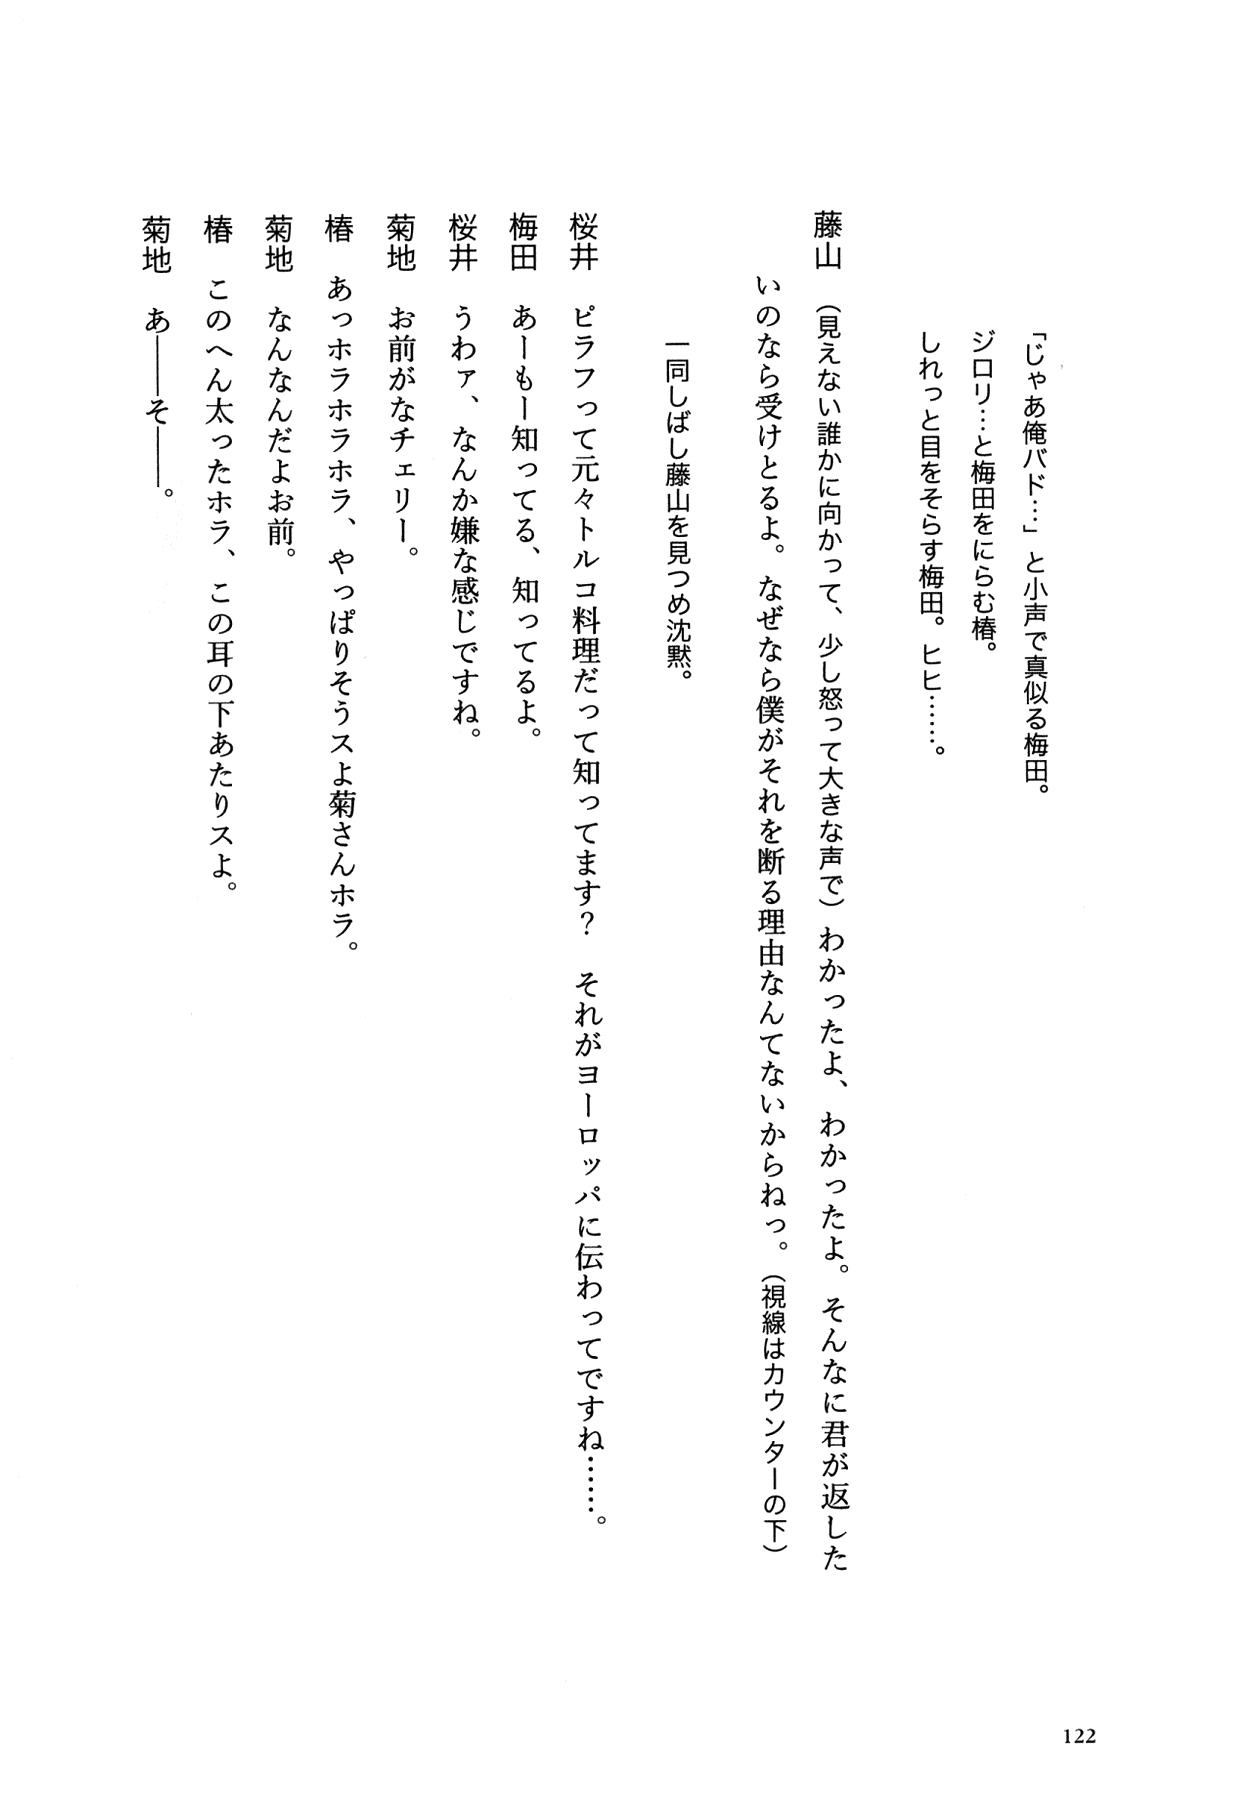 「じゃあ俺バド…」と小声で真似る梅田。
ジロリ…と梅田をにらむ椿。
しれっと目をそらす梅田。ヒヒ……。
藤山　（見えない誰かに向かって、少し怒って大きな声で）わかったよ、わかったよ。そんなに君が返した
いのなら受けとるよ。なぜなら僕がそれを断る理由なんてないからねっ。（視線はカウンターの下）
一同しばし藤山を見つめ沈黙。
桜井　ピラフって元々トルコ料理だって知ってます？　それがヨーロッパに伝わってですね……。
梅田　あーもー知ってる、知ってるよ。
桜井　うわァ、なんか嫌な感じですね。
菊地　お前がなチェリー。
椿　あっホラホラホラ、やっぱりそうスよ菊さんホラ。
菊地　なんなんだよお前。
椿　このへん太ったホラ、この耳の下あたりスよ。
菊地　あ――そ――。
122